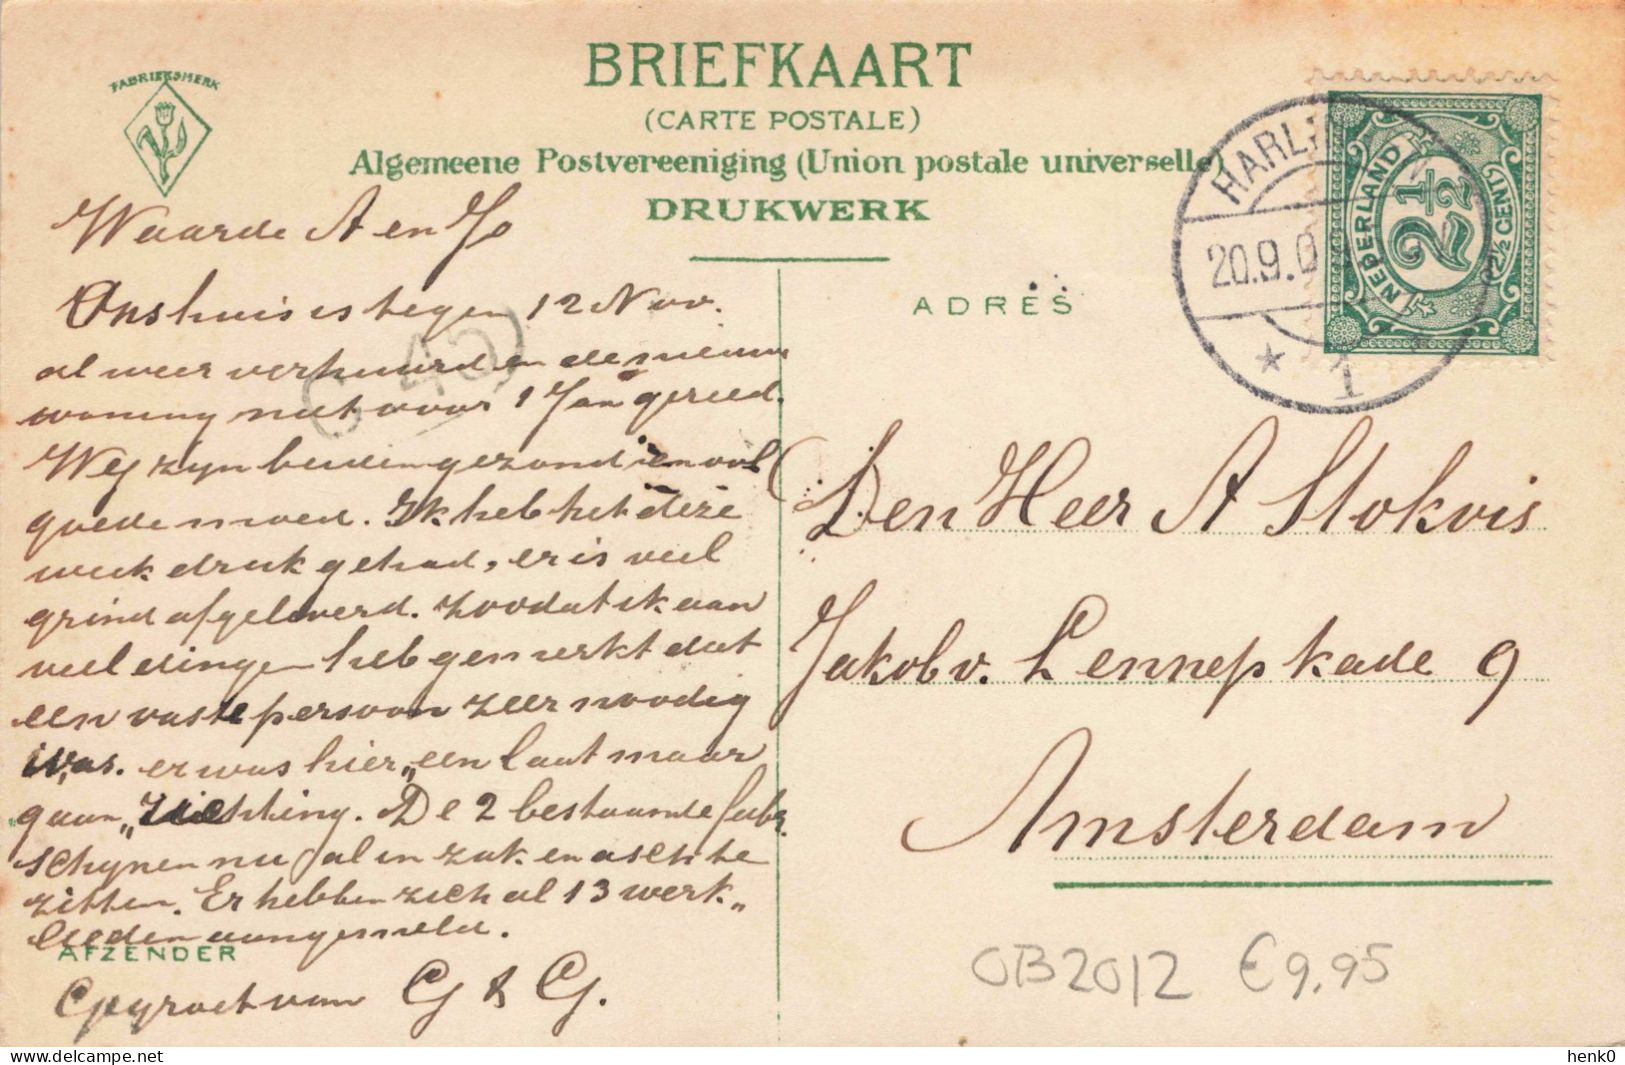 FABRIEKSMERK
BRIEFKAART
(CARTE POSTALE)
Algemeene Postvereeniging (Union postale universelle)
DRUKWERK
Waarde A en Jo
Ons huis is tegen 12 Nov.
al weer verhuurd en de nieuwe
woning niet voor 1 Jan gereed.
Wey zyn beiden gezond en vol
goeden moed. Ik heb het deze
week druk gehad, er is veel
grind afgeleverd. zoodat ik aan
veel dingen heb gemerkt dat
een vaste persoon zeer noodig
was. er was hier „een laat maar
gaan„ . De 2 bestaande fabr.
schynen nu al in zak en assche
zitten. Er hebben zich al 13 werk„
lieden aangemeld.
AFZENDER
Gegroet van G & G.
ADRES
Den Heer A Stokvis
Jakob v. Lennepkade 9
Amsterdam
HARLI
20.9.0
1
NEDERLAND
2½
2½ CENT
OB2012 €9,95
henk0